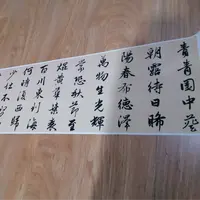 青青園中葵
朝露待日晞
陽春布德澤
萬物生光輝
常恐秋節至
焜黃華葉衰
百川東到海
何時復西歸
少壯不努